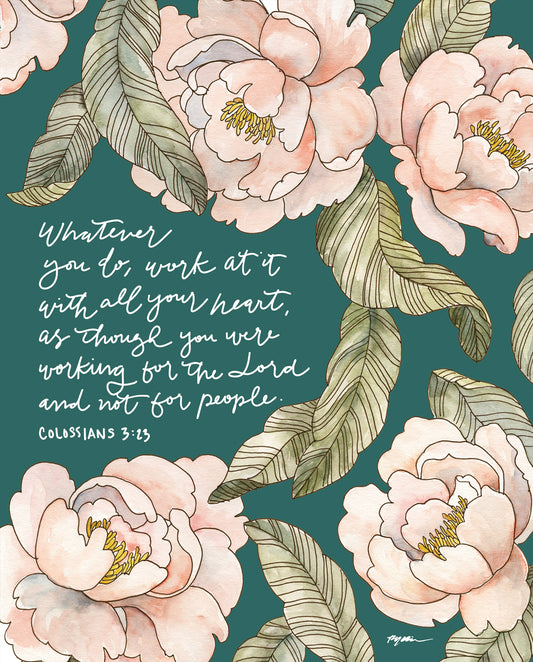 Whatever
you do, work at it
with all your heart,
as though you were
working for the Lord
and not for people.
COLOSSIANS 3:23